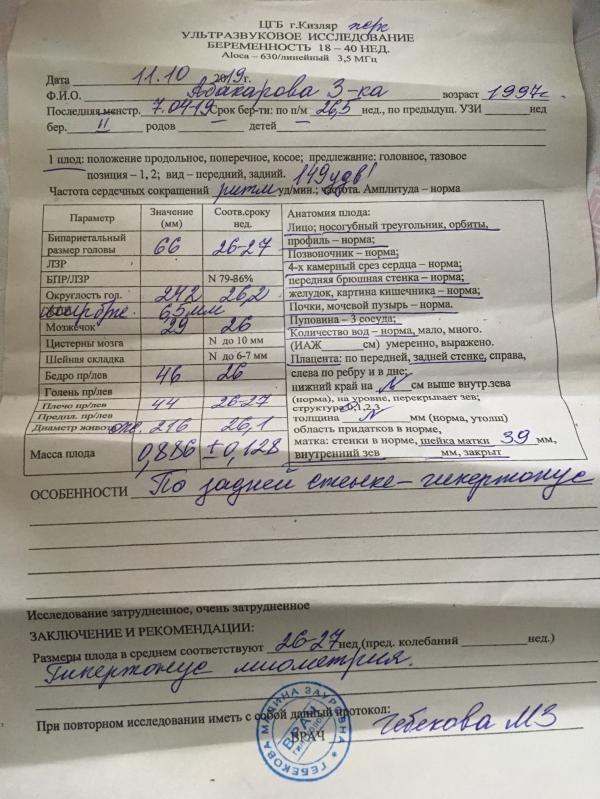 ЦГБ г.Кизляр перк
УЛЬТРАЗВУКОВОЕ ИССЛЕДОВАНИЕ
БЕРЕМЕННОСТЬ 18 – 40 НЕД.
Aloca – 630/линейный 3,5 МГц
Дата 11.10 2019г.
Ф.И.О. Абакарова З-ка возраст 1997г
Последняя менстр. 7.04.19 Срок бер-ти: по п/м 26,5 нед., по предыдущ. УЗИ нед
бер. II родов – детей –
1 плод: положение продольное, поперечное, косое; предлежание: головное, тазовое
позиция – 1, 2; вид – передний, задний. 149 удв!
Частота сердечных сокращений ритм уд/мин.; частота. Амплитуда – норма
Параметр Значение (мм) Соотв.сроку нед.
Бипариетальный размер головы 66 26-27
ЛЗР
БПР/ЛЗР N 79-86%
Округлость гол. 242 26,2
6,5 мм
Мозжечок 29 26
Цистерны мозга N до 10 мм
Шейная складка N до 6-7 мм
Бедро пр/лев 46 26
Голень пр/лев
Плечо пр/лев 44 26-27
Предпл. пр/лев
Диаметр живот окр. 216 26,1
Масса плода 0,886 ± 0,128
Анатомия плода:
Лицо; носогубный треугольник, орбиты,
профиль – норма;
Позвоночник – норма;
4-х камерный срез сердца – норма;
передняя брюшная стенка – норма;
желудок, картина кишечника – норма;
Почки, мочевой пузырь – норма.
Пуповина – 3 сосуда;
Количество вод – норма, мало, много.
(ИАЖ см) умеренно, выражено.
Плацента: по передней, задней стенке, справа,
слева по ребру и в дне;
нижний край на N см выше внутр.зева
(норма), на уровне, перекрывает зев;
структура 0,1,2,3
толщина N мм (норма, утолщ)
область придатков в норме,
матка: стенки в норме, шейка матки 39 мм,
внутренний зев мм, закрыт
ОСОБЕННОСТИ По задней стенке – гипертонус
Исследование затрудненное, очень затрудненное
ЗАКЛЮЧЕНИЕ И РЕКОМЕНДАЦИИ:
Размеры плода в среднем соответствуют 26-27 нед (пред. колебаний нед.)
Гипертонус миометрия.
При повторном исследовании иметь с собой данный протокол:
ВРАЧ Гебекова МЗ
ГЕБЕКОВА МАДИНА ЗАУРОВНА
ВРАЧ